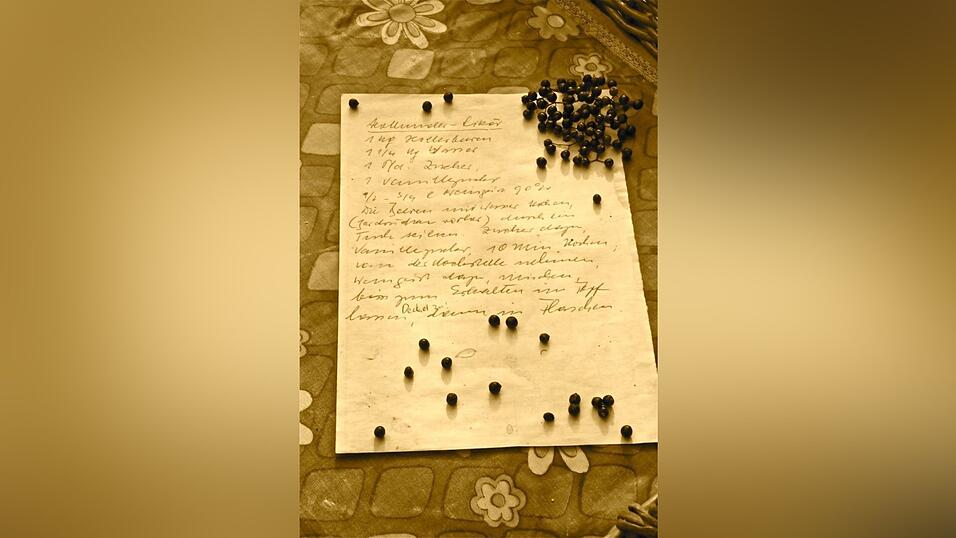 Hollunder-Likör
1 kg Hollerbeeren
1 1/4 kg Wasser
1 Zucker,
1 Vanillezucker
1/2 - 3/4 l Weingeist 90%
Die Beeren mit Wasser kochen,
(zerdrücken vorher) durch ein
Tuch seihen. Zucker dazu,
Vanillezucker, 10 Min kochen,
von der Kochstelle nehmen,
Weingeist dazu, mischen,
bis zum Erkalten im Topf
lassen, Deckel zu, dann in Flaschen.